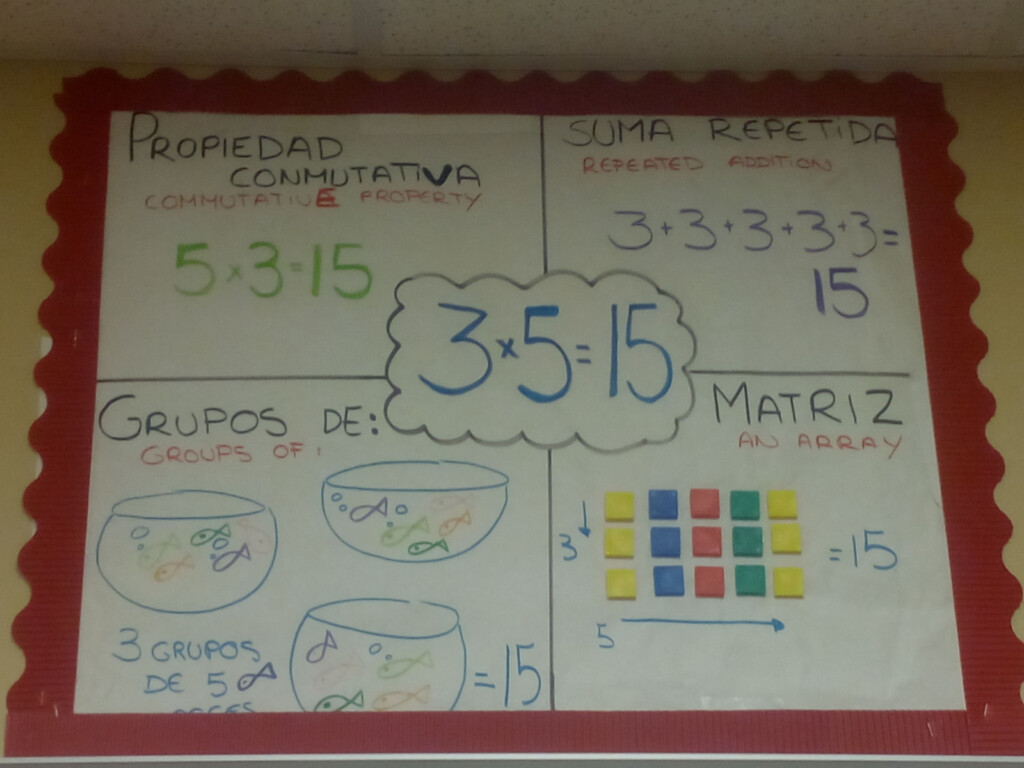 PROPIEDAD
CONMUTATIVA
COMMUTATIVE PROPERTY
5 x 3 = 15
SUMA REPETIDA
REPEATED ADDITION
3 + 3 + 3 + 3 + 3 =
15
3 x 5 = 15
GRUPOS DE:
GROUPS OF:
3 GRUPOS
DE 5
= 15
MATRIZ
AN ARRAY
3
= 15
5